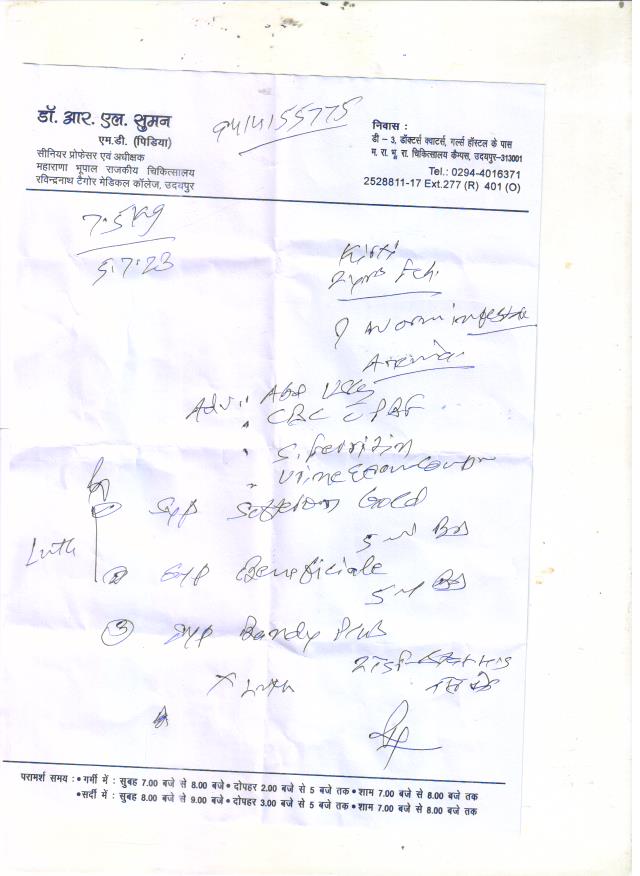 डॉ. आर. एल. सुमन
एम.डी. (पिडिया)
सीनियर प्रोफेसर एवं अधीक्षक
महाराणा भूपाल राजकीय चिकित्सालय
रविन्द्रनाथ टैगोर मेडिकल कॉलेज, उदयपुर
9414155775
निवास :
डी – 3, डॉक्टर्स क्वाटर्स, गर्ल्स हॉस्टल के पास
म. रा. भू. रा. चिकित्सालय कैम्पस, उदयपुर-313001
Tel.: 0294-4016371
2528811-17 Ext.277 (R) 401 (O)
7.5 kg
5.7.23
2 yrs Fch.
? worm infesta
Anemia
Adv.: Abd USG
CBC PBF
S. ferritin
Urine
① Syp Gold
5 ml BD
② Syp Beneficiale
5 ml BD
③ Syp Bandy Plus
परामर्श समय : • गर्मी में : सुबह 7.00 बजे से 8.00 बजे • दोपहर 2.00 बजे से 5 बजे तक • शाम 7.00 बजे से 8.00 बजे तक
• सर्दी में : सुबह 8.00 बजे से 9.00 बजे • दोपहर 3.00 बजे से 5 बजे तक • शाम 7.00 बजे से 8.00 बजे तक